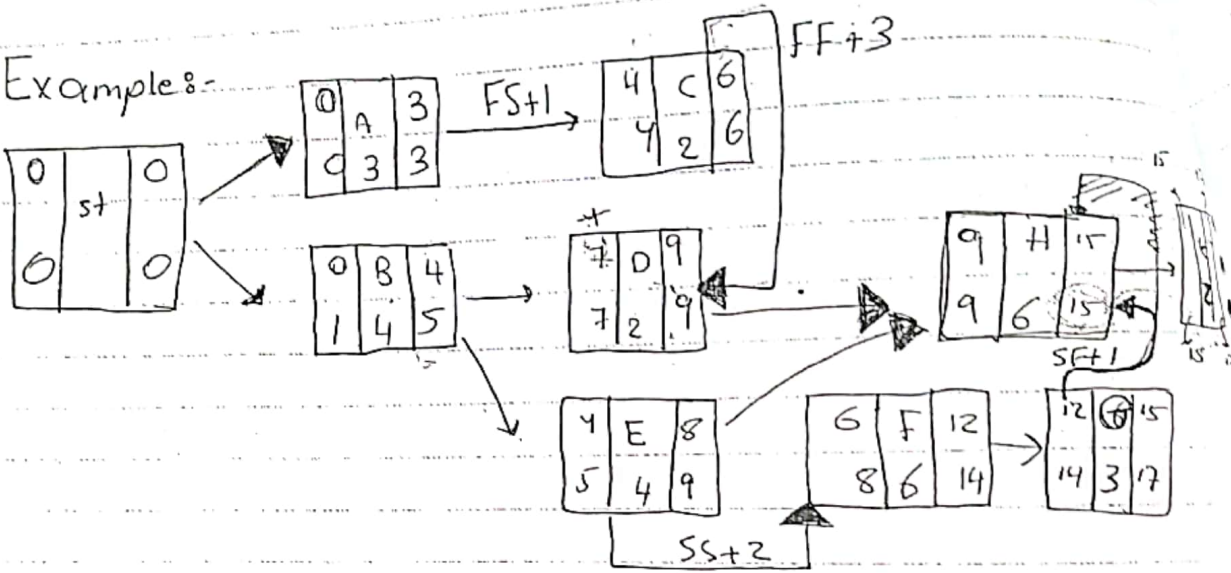 Examples:-
FF+3
0 A 3
0 3 3
FS+1
4 C 6
4 2 6
0 st 0
0 0
0 B 4
1 4 5
7 D 9
7 2 9
9 H 15
9 6 15
15
SF+1
4 E 8
5 4 9
6 F 12
8 6 14
12 G 15
14 3 17
SS+2